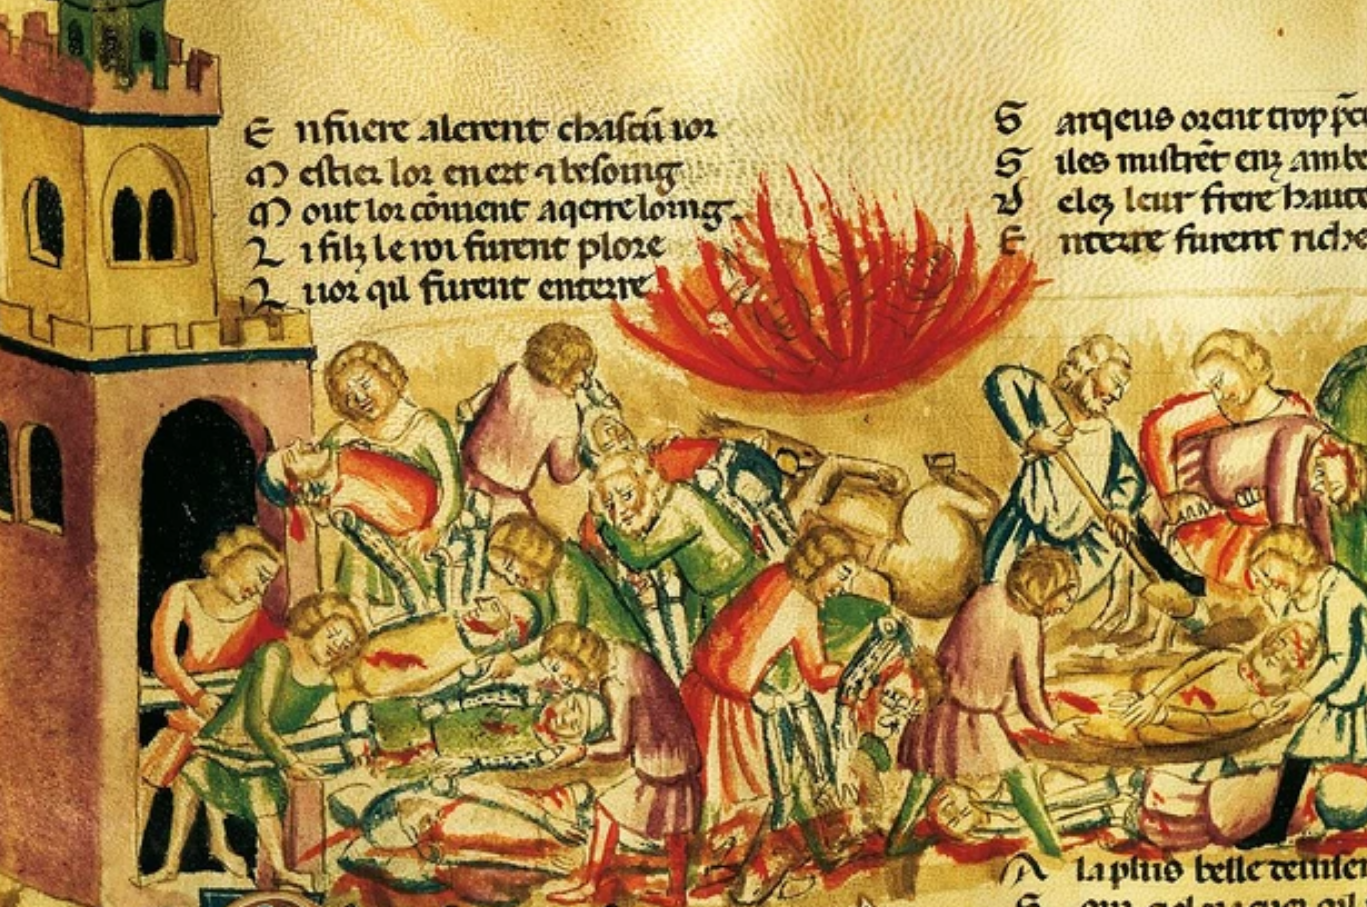 E nfuere alerent chascũ ior
M estier lor en ert ⁊ besoing
M out lor cõuient aqerre loing.
L i filz le roi furent plore
L uor qil furent enterre
S arqeus orent trop p̃ci
S iles mistrẽt enz ambe
V elez leur frere haute
E nterre furent riche
A la plus belle